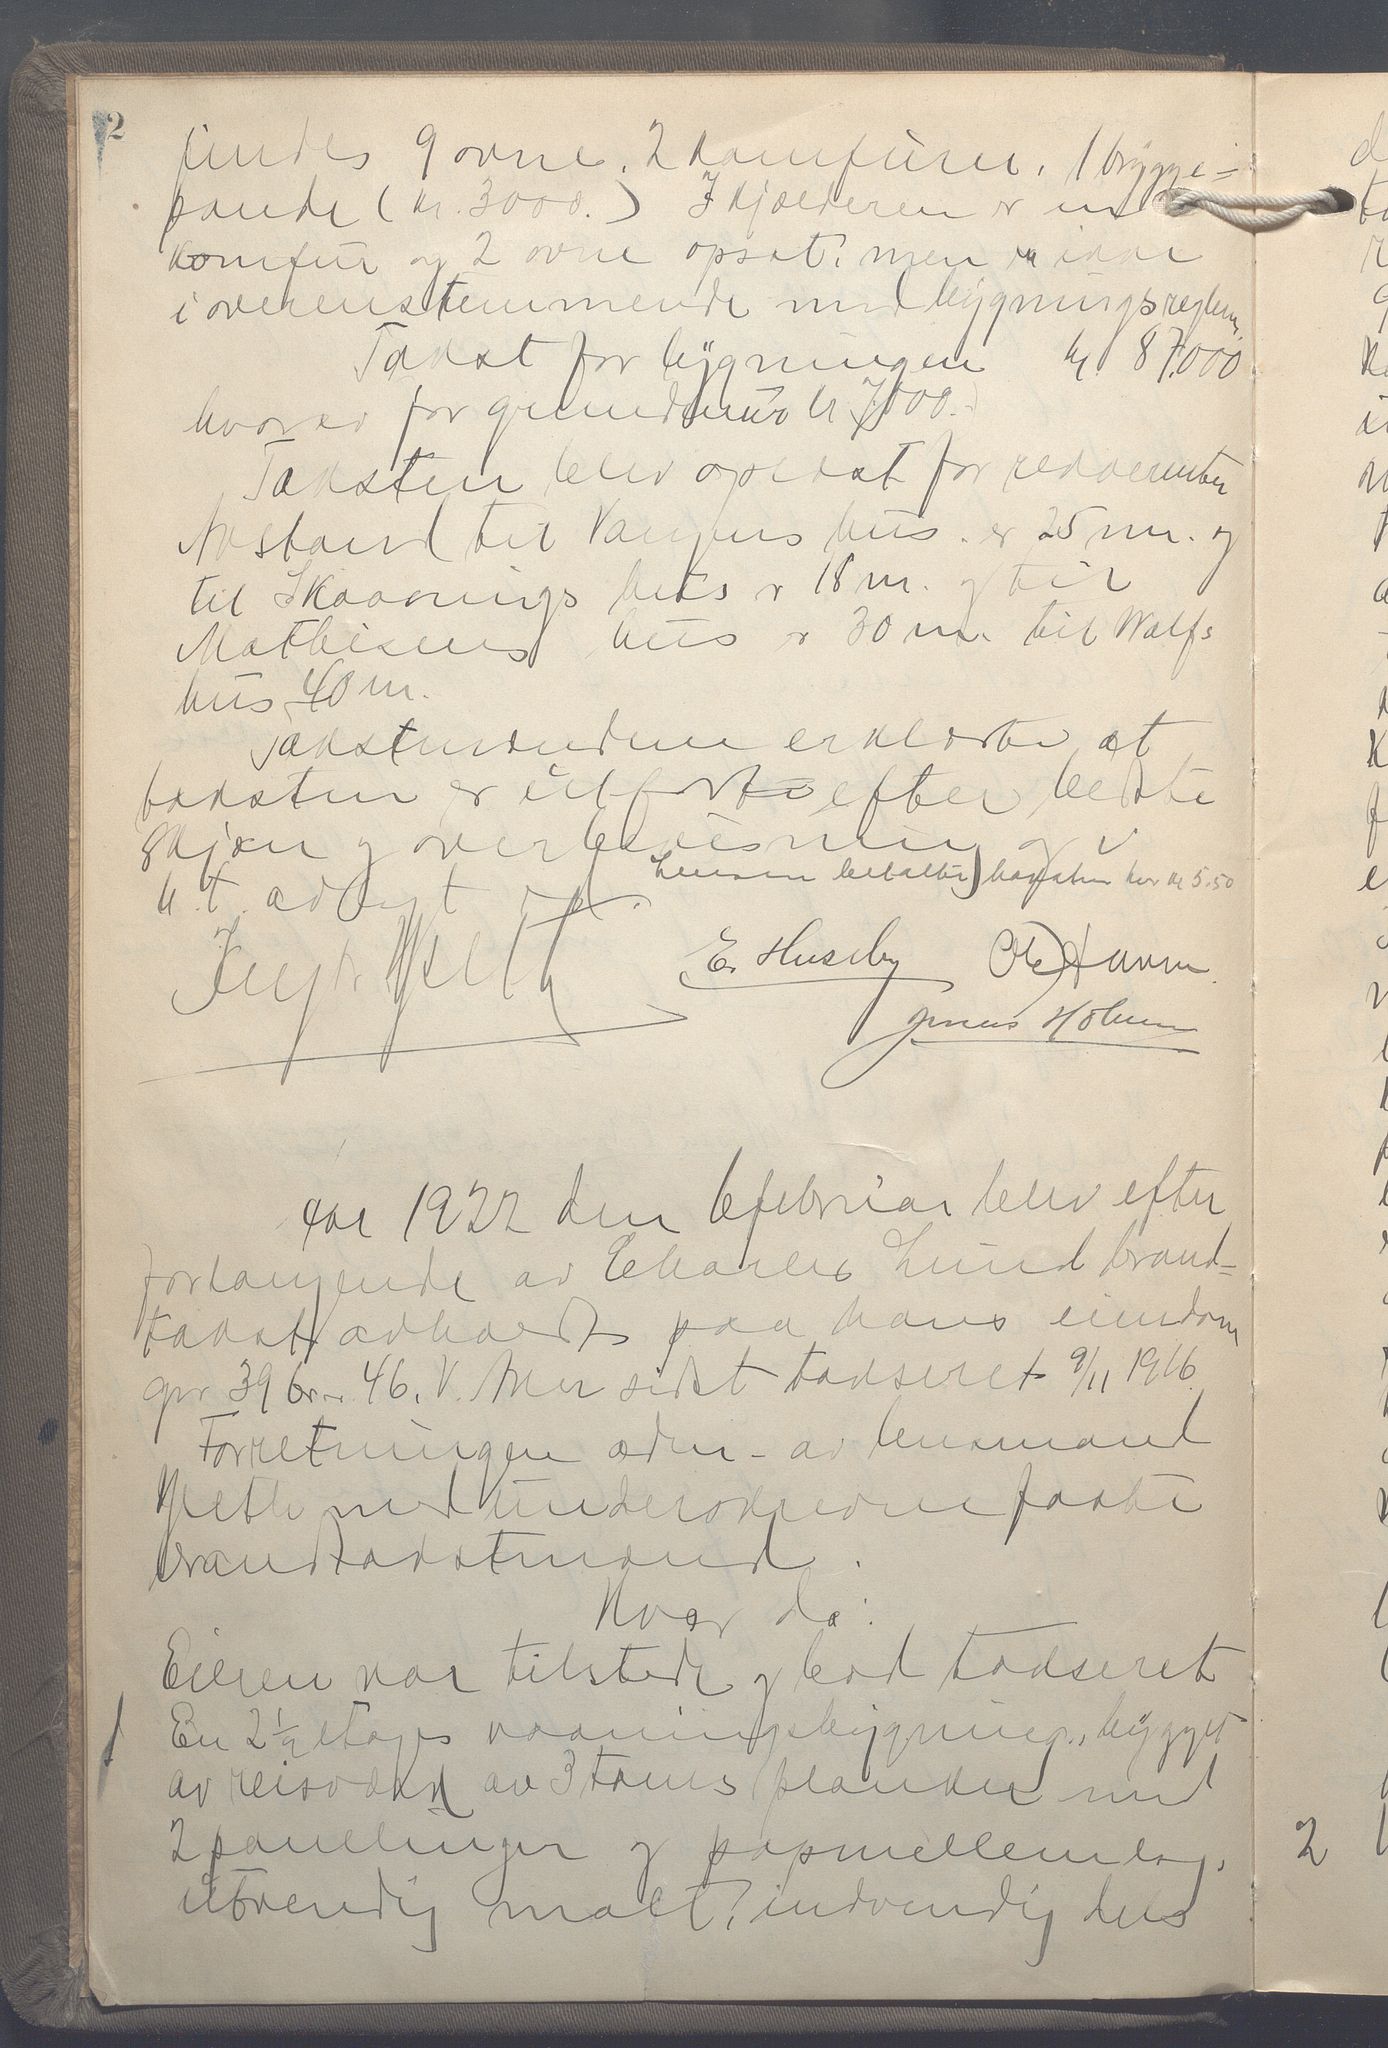 2
findes 9 ovne, 2 komfurer, 1 brygge=
pande (kr. 3000.) I kjælderen er en
komfur og 2 ovne opsat, men er ikke
i overenstemmende med bygningsreglem.
Takst for bygningen kr 87.000
hvorav for grundmur kr 7000.-
Taksten blev oplæst for
Avstand til Vangens hus er 25 m. og
til Skaanings hus er 18 m. og til
Mathisens hus er 30 m. til Wolfs
hus 40 m.
Takstmændene erklærte at
taksten er utført efter bedste
skjøn og overbevisning og i
h.t. avlagt ed.
Lensm betalte) taksten her kr 5.50
Hjeth
E. Huseby Ole
Jonas Holmen
Aar 1922 den 6 februar blev efter
forlangende av Charles Lund brand=
takst avholdt paa hans eiendom
gnr 39 br.nr. 46, V. Aker sidst takseret 9/11 1916.
Forretningen adm. av lensmand
Hjeth med underskrevne faste
brandtakstmænd.
Hvor da:
Eieren var tilstede og bød takseret
1
En 2 1/2 etages vaaningsbygning, bygget
av reisværk av 3 toms planker med
2 panelinger og papmellemlag,
utvendig malt, indvendig dels
2